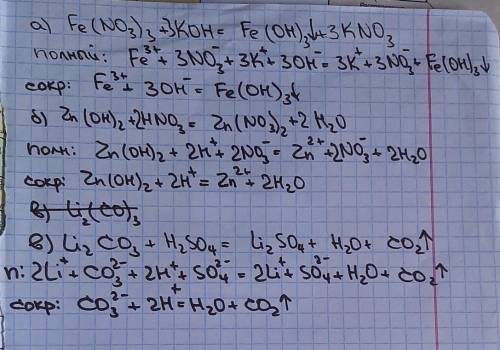 а) Fe(NO₃)₃ + 3KOH = Fe(OH)₃↓ + 3KNO₃
полный: Fe³⁺ + 3NO₃⁻ + 3K⁺ + 3OH⁻ = 3K⁺ + 3NO₃⁻ + Fe(OH)₃↓
сокр: Fe³⁺ + 3OH⁻ = Fe(OH)₃↓
б) Zn(OH)₂ + 2HNO₃ = Zn(NO₃)₂ + 2H₂O
полн: Zn(OH)₂ + 2H⁺ + 2NO₃⁻ = Zn²⁺ + 2NO₃⁻ + 2H₂O
сокр: Zn(OH)₂ + 2H⁺ = Zn²⁺ + 2H₂O
в) Li₂(CO)₃
в) Li₂CO₃ + H₂SO₄ = Li₂SO₄ + H₂O + CO₂↑
п: 2Li⁺ + CO₃²⁻ + 2H⁺ + SO₄²⁻ = 2Li⁺ + SO₄²⁻ + H₂O + CO₂↑
сокр: CO₃²⁻ + 2H⁺ = H₂O + CO₂↑